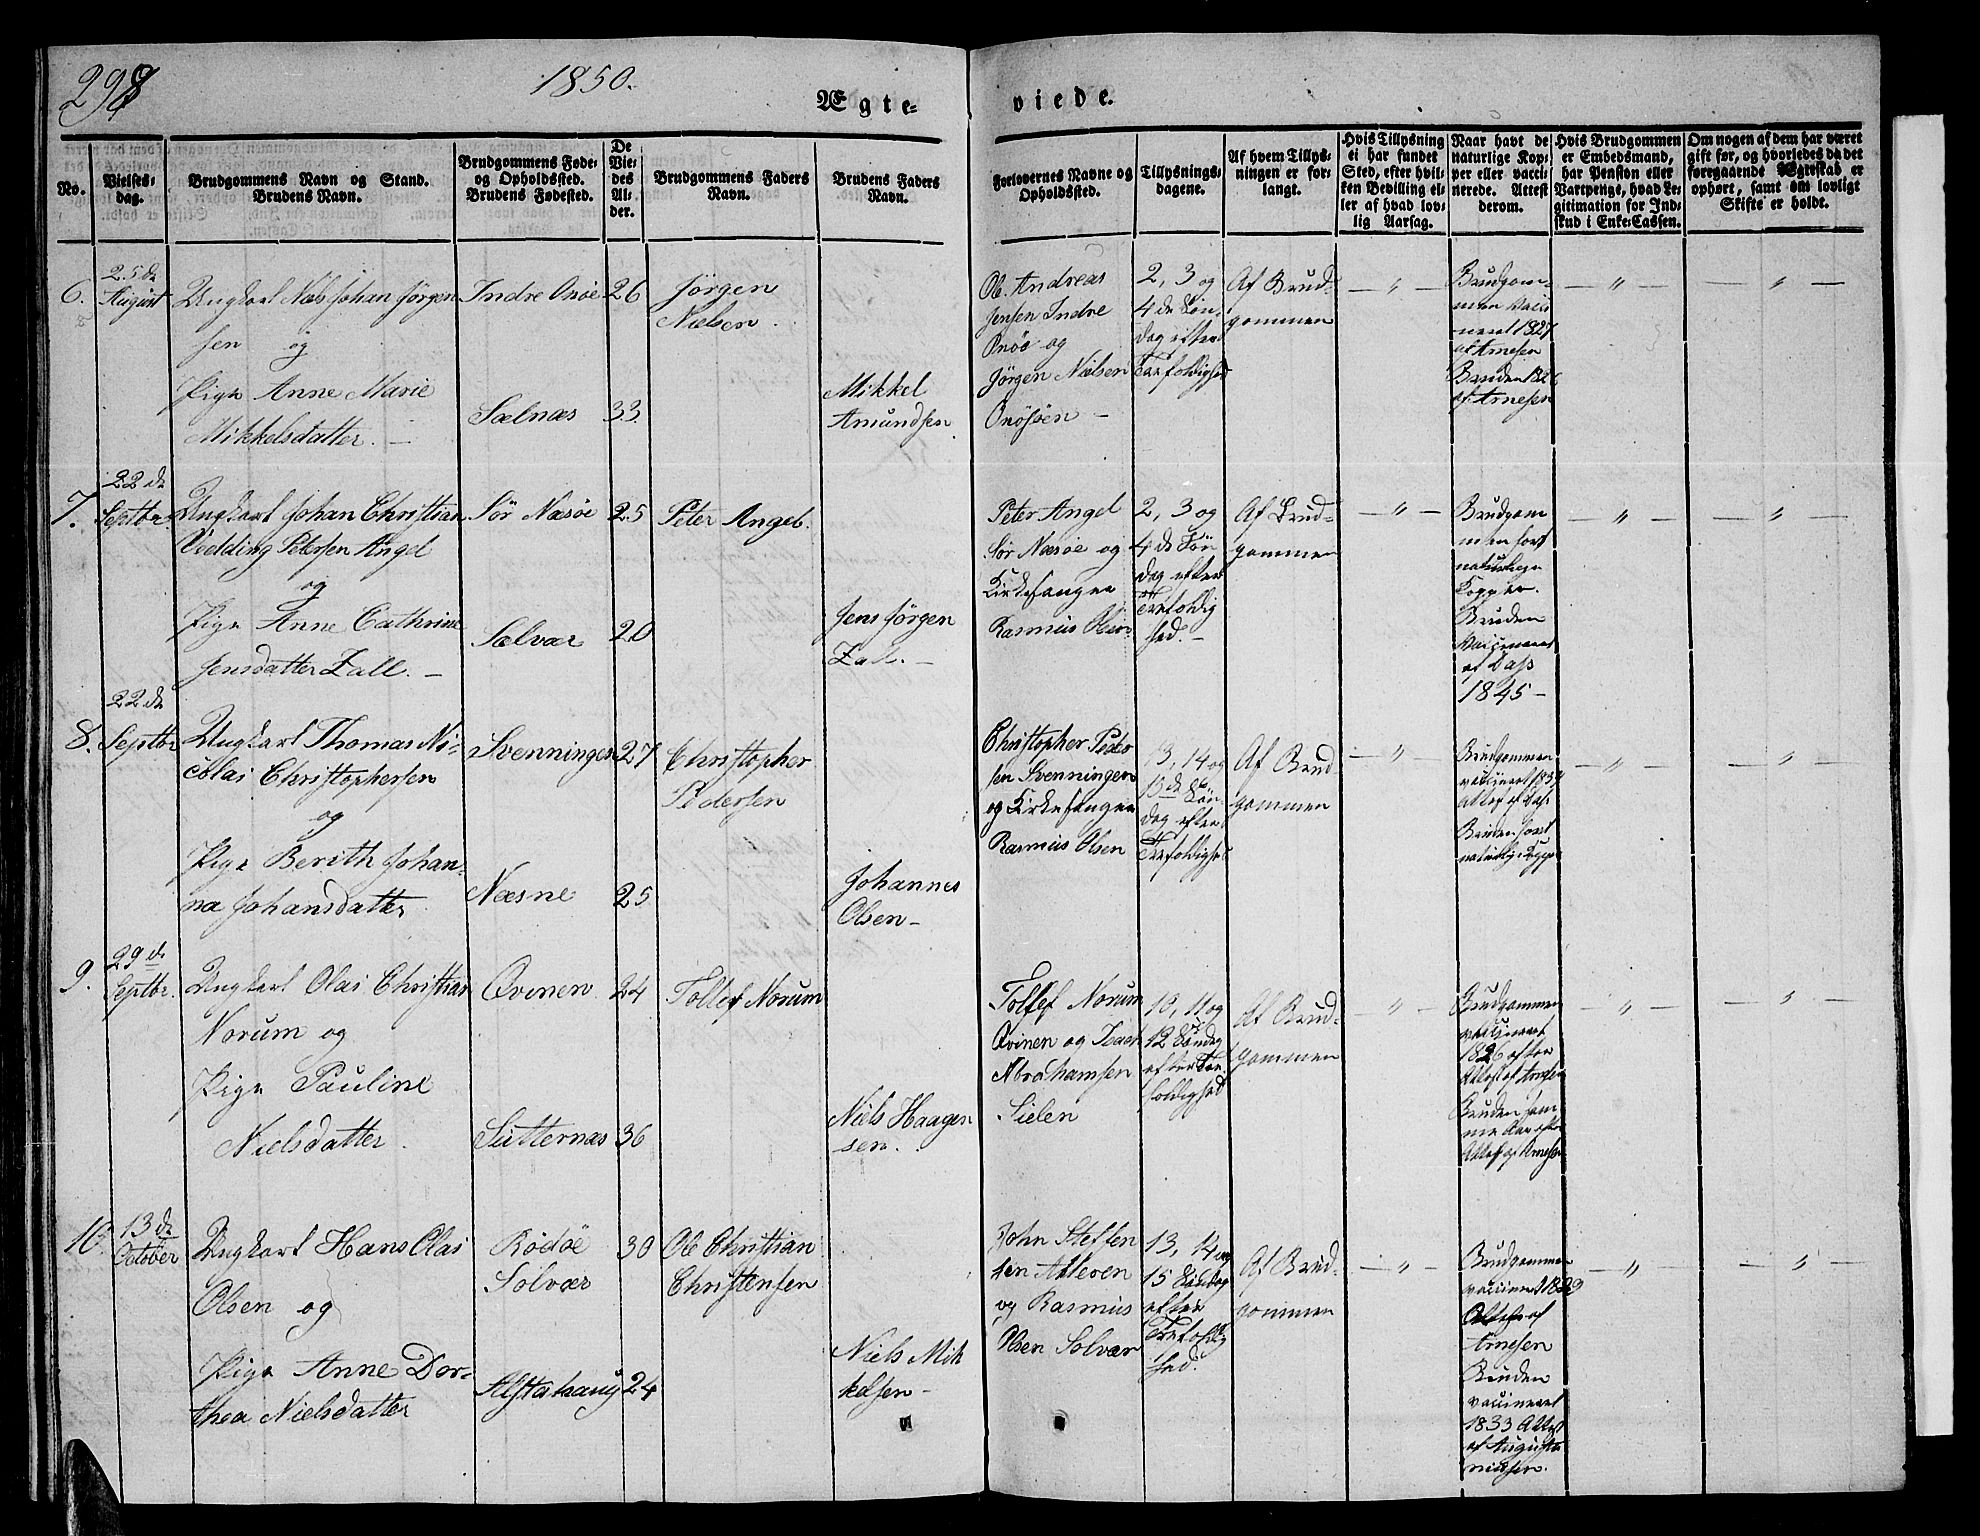 298
1850.
Ægte-
viede.
No.
Vielses-
dag.
Brudgommens Navn og Stand.
Brudens Navn.
Brudgommens Føde-
og Opholdssted.
Brudens Fødested.
De
Vie-
des
Al-
der.
Brudgommens Faders
Navn.
Brudens Faders
Navn.
Forlovernes Navne og
Opholdssted.
Tillysnings-
dagene.
Af hvem Tillys-
ningen er for-
langt.
Hvis Tillysning
ei har fundet
Sted, efter hvil-
ken Bevilling el-
ler af hvad lov-
lig Aarsag.
Naar havt de
naturlige Kop-
per eller vacci-
nerede. Attest
derom.
Hvis Brudgommen
er Embedsmand,
har Pension eller
Vartpenge, hvad Le-
gitimation for Ind-
skud i Enke-Cassen.
Om nogen af dem har været
gift før, og hvorledes da det
foregaaende Ægteskab er
ophørt, samt om lovligt
Skifte er holdt.
6.
25 de
August
Ungkarl Niels Johan Jørgen
sen og
Pige Anne Marie
Mikkelsdatter. —
Indre Onøe
Sælnæs
26
33
Jørgen
Nielsen
Mikkel
Amundsen
Ole Andreas
Jensen Indre
Onøe og
Jørgen Nielsen
Onøeøen —
2, 3 og
4 de Søn-
dag efter
Trefoldighed
Af Brud-
gommen
— " —
Brudgom-
men vacci
neret 1827
af Arnesen
Bruden 1826
af Arnesen
— " —
— " —
7.
22 de
Septbr.
Ungkarl Johan Christian
Vedding Petersen Angel
og
Pige Anne Cathrine
Jensdatter Zall. —
Sør Næsøe
Sælvær
25
20
Peter Angel.
Jens Jørgen
Zall. —
Peter Angel
Sør Næsøe og
Kirkesanger
Rasmus Olsen
2, 3 og
4 de Søn
dag efter
Trefoldig
hed. —
Af Brud-
gommen
— " —
Brudgom
men havt
naturlige
Kopper.
Bruden
vaccineret
af Dass
1845 —
— " —
— " —
8.
22 de
Septbr
Ungkarl Thomas Ni-
colai Christophersen
og
Pige Berith Johan-
na Johansdatter
Svenningen
Næsne
27
25
Christopher
Pedersen
Johannes
Olsen —
Christopher Peder
sen Svenningen
og Kirkesanger
Rasmus Olsen
13, 14 og
15 de Søn-
dag efter
Trefoldighed
Af Brud
gommen
— " —
Brudgommen
vaccineret
Attest af Dass
Bruden havt
naturlige Kopper
— " —
— " —
9.
29 de
Septbr.
Ungkarl Olai Christian
Norum og
Pige Pauline
Nielsdatter.
Qvinen
Sutternæs
24
36
Tollef Norum
Niels Haagen
sen.
Tollef Norum
Qvinen og Isach
Abrahamsen
Sielen
10, 11 og
12 Søndag
efter Tre
foldighed
Af Brud-
gommen
— " —
Brudgommen
vaccineret
1826 efter
Attest af Arnesen
Bruden
Attest af Arnesen
— " —
— " —
10.
13 de
October
Ungkarl Hans Olai
Olsen og
Pige Anne Dor-
thea Nielsdatter
Rødøe
Solvær
Alstahaug
30
24
Ole Christian
Christensen
Niels Mik
kelsen —
John Steffen
sen Alteren
og Rasmus
Olsen Solvær
13, 14 og
15 Søndag
efter
Trefoldig
hed.
Af Brud-
gommen
— " —
Brudgommen
vaccineret 1829
Attest af
Arnesen
Bruden
vaccineret
1833 Attest
af Augusti
nusen.
— " —
— " —